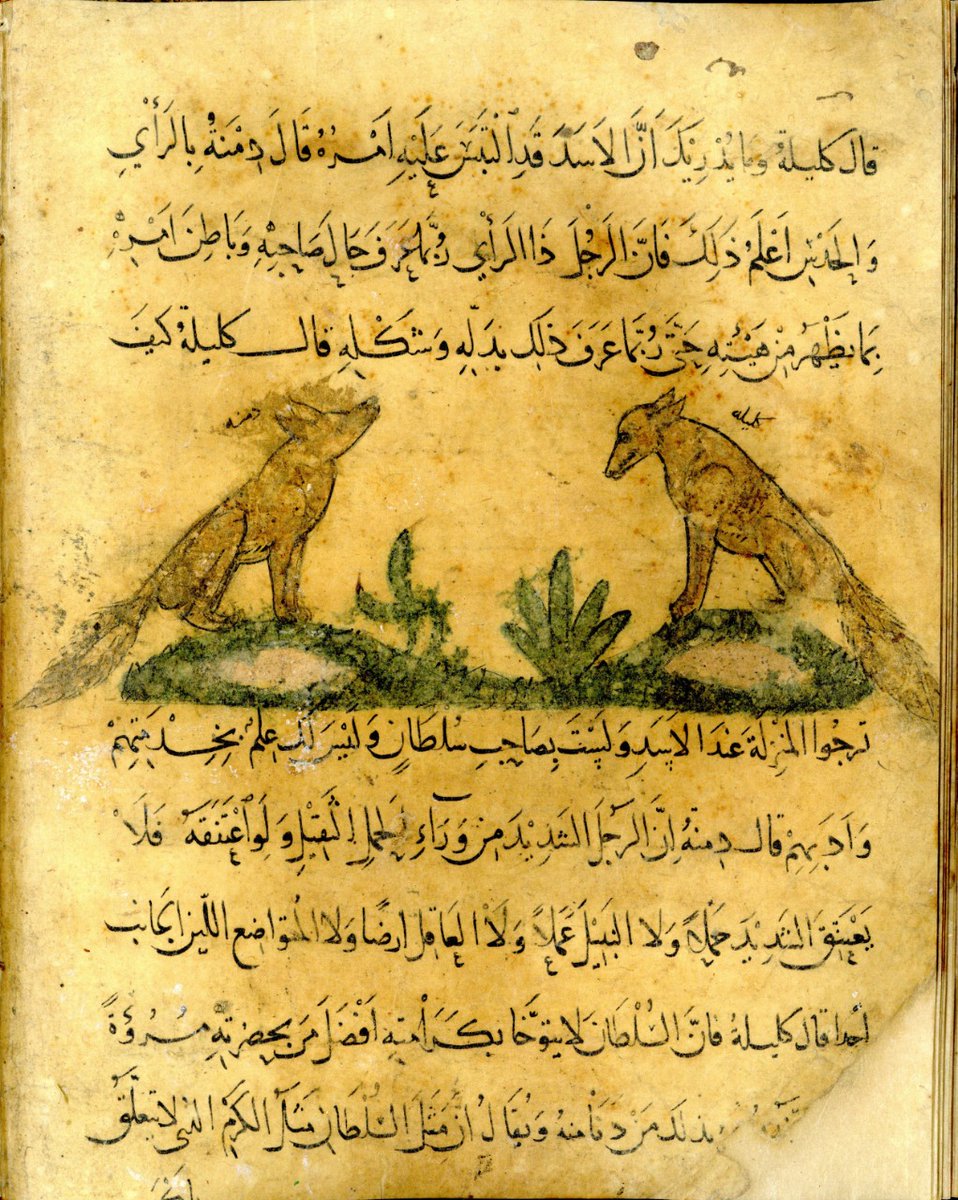 قال كليلة وما يدريك أنّ الاسد قد التبس عليه امره قال دمنة بالرأي
والحدس اعلم ذلك فانّ الرجل ذا الرأي ربّما عرف حال صاحبه وباطن امره
بما يظهر من هيئته حتّى ربّما عرف ذلك بدلّه وشكله قال كليلة كيف
كليله
دمنه
ترجوا المنزلة عند الاسد ولست بصاحب سلطان وليس لك علم بخدمتهم
وادبهم قال دمنة انّ الرجل الشديد من وراء الحمل الثقيل ولو اعتنقه فلا
يعتنق الشديد حمله ولا النبيل عملاً ولا العاقل ارضًا ولا المتواضع اللّين الجانب
احدا قال كليلة فانّ السلطان لا يتوخّا بكرامته افضل من بحضرته مروءةً
بذلك من دنا منه ويقال انّ مثل السلطان مثل الكرم الذي لا يتعلّق